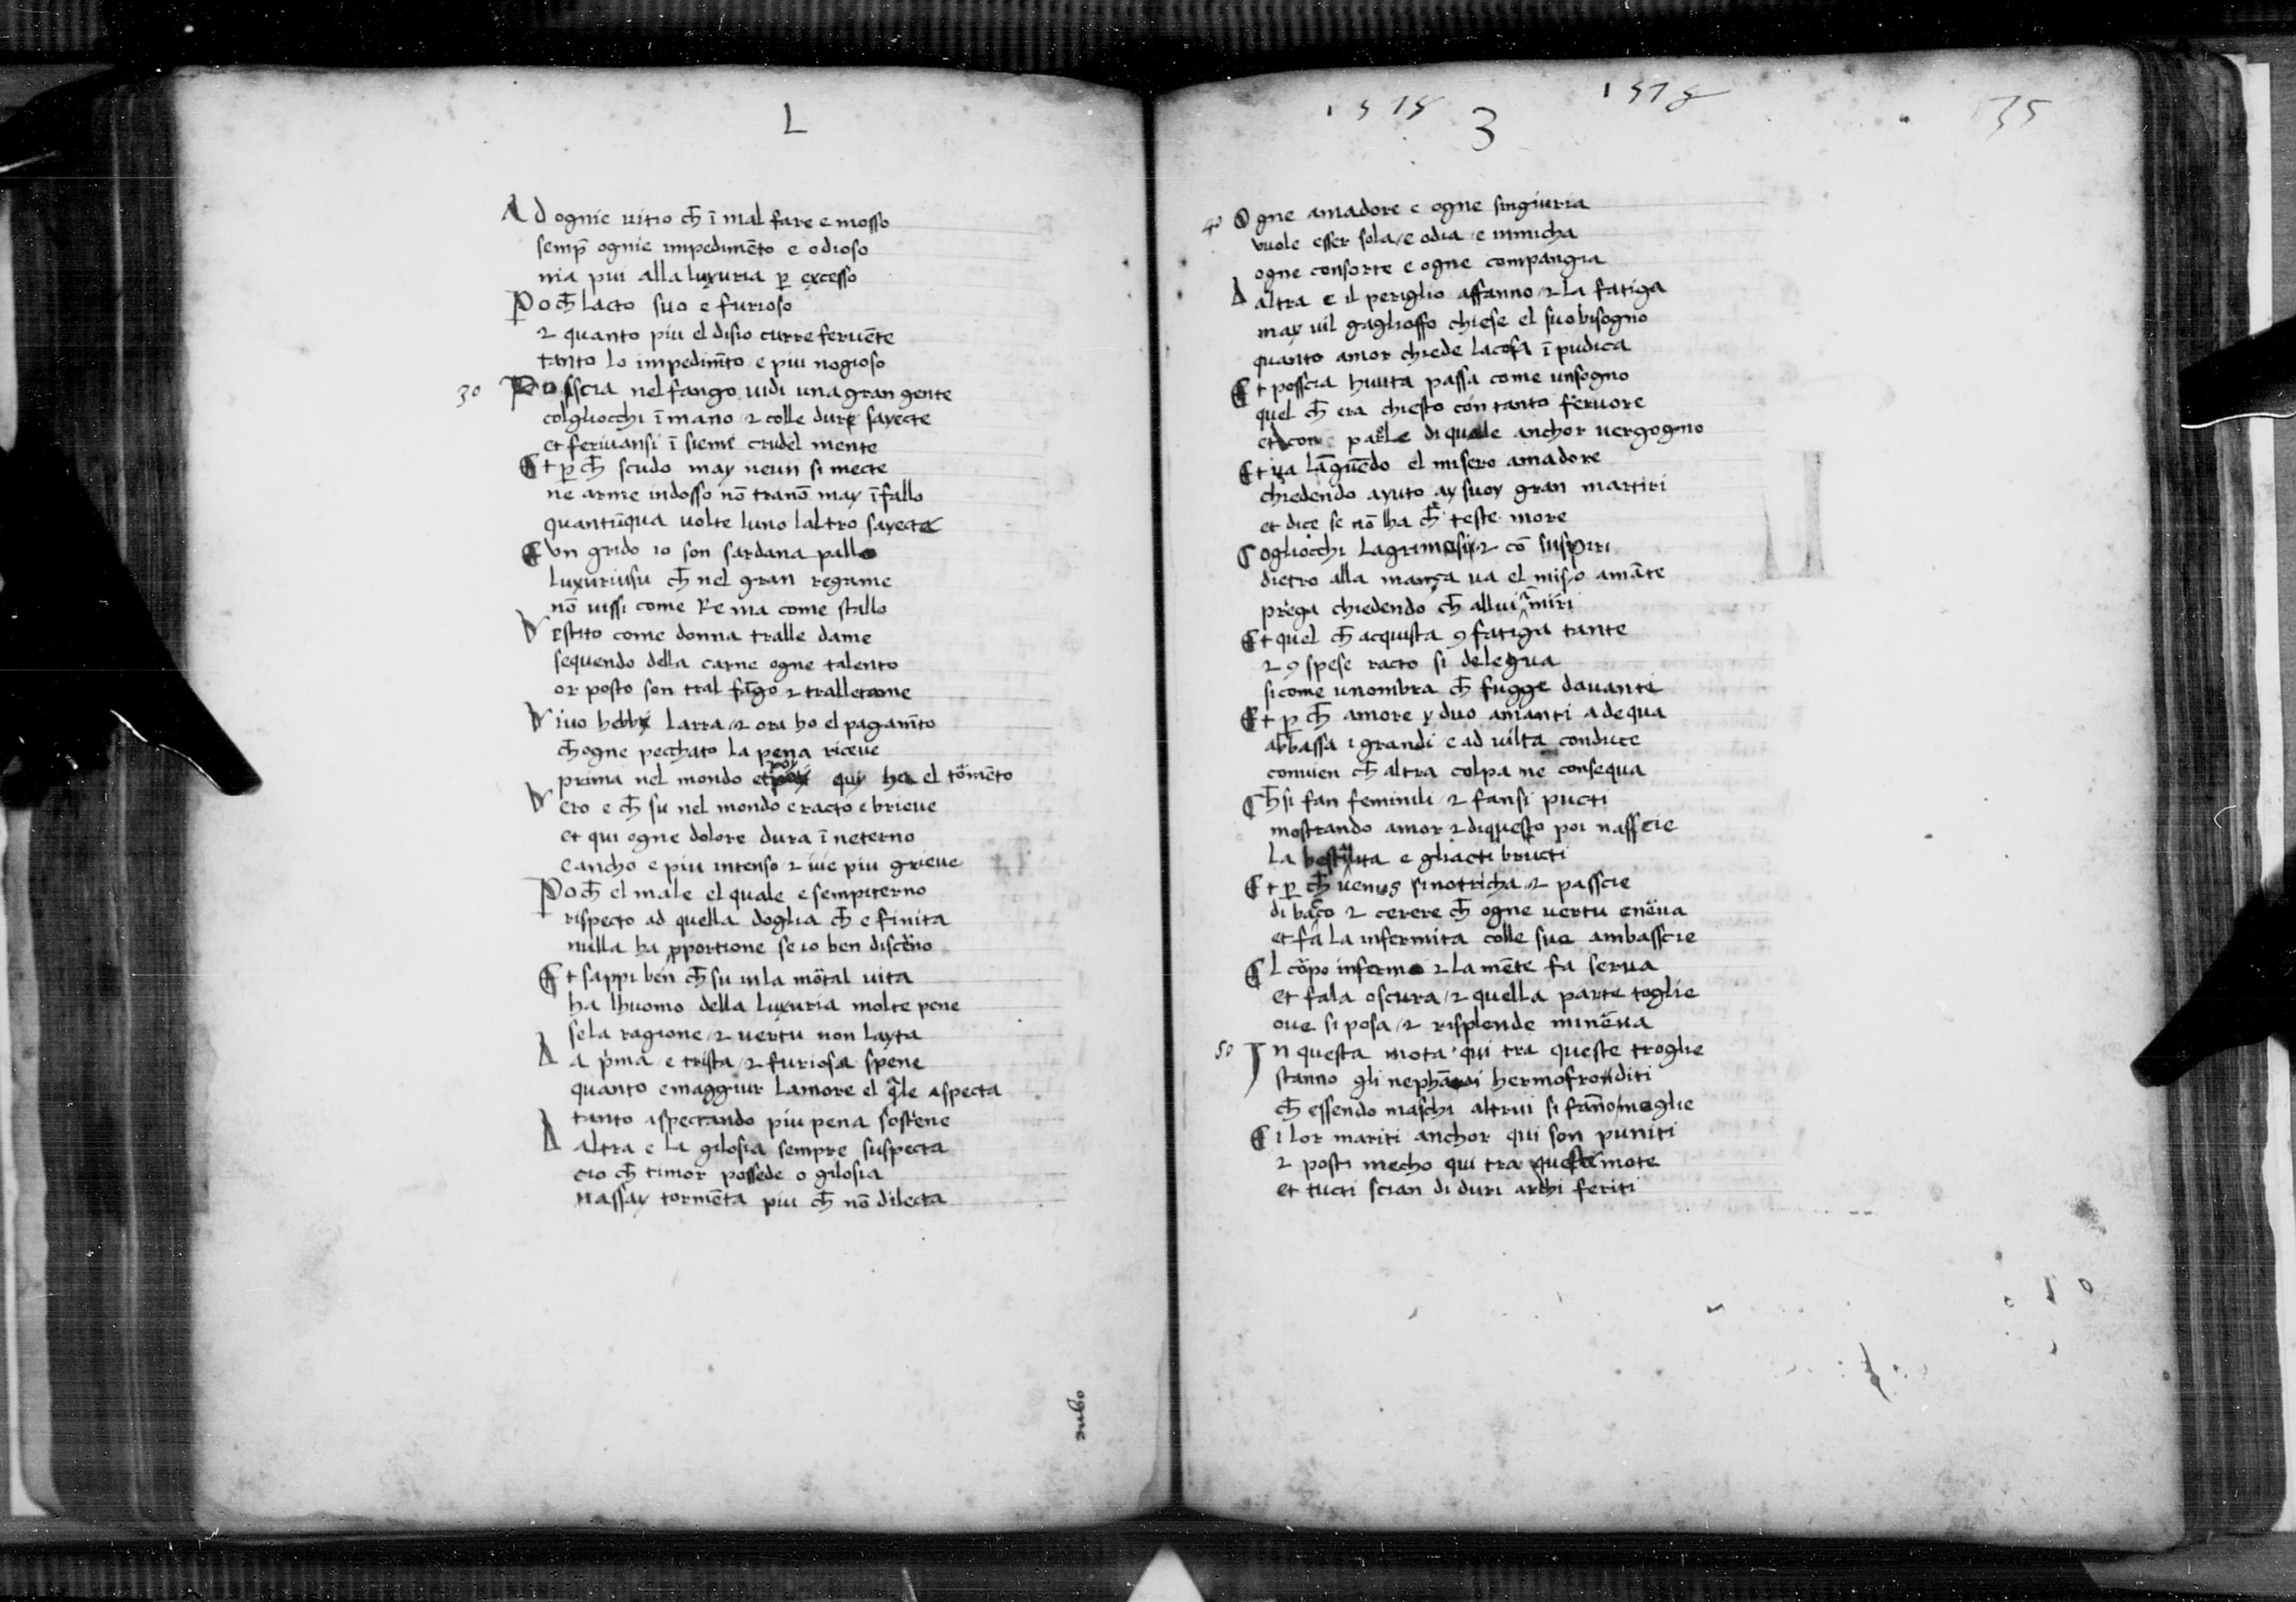 L
Ad ognie uitio ch̄ ī mal fare e mosso
semp̄ ognie impedimēto e odioso
ma piu alla luxuria p̱ excesso
Poch̄ lacto suo e furioso
⁊ quanto piu el disio curre feruēte
tanto lo impedim̄to e piu nogioso
30 Posscia nel fango uidi una gran gente
colgliocchi ī mano ⁊ colle dure sayecte
et feriuansi ī sieme crudel mente
Et p̱ ch̄ scudo may neun si mecte
ne arme indosso nō tranō may ī fallo
quantūqua uolte luno laltro sayecta
Vn grido io son sardana pallo
Luxuriusu ch̄ nel gran regame
nō uissi come Re ma come stallo
Vestito come donna tralle dame
sequendo della carne ogne talento
or posto son tral fāgo ⁊ tralletame
Viuo hebby larra ⁊ ora ho el pagam̄to
ch̄ ogne pecchato la pena riceue
prima nel mondo et poy quy ha el tōmēto
Vero e ch̄ su nel mondo e racto e brieue
et qui ogne dolore dura ī neterno
e ancho e piu intenso ⁊ uie piu grieue
Poch̄ el male el quale e sempiterno
rispecto ad quella doglia ch̄ e finita
nulla ha pportione se io ben discēno
Et sappi ben ch̄ su inla mōtal uita
ha lhuomo della luxuria molte pene
se la ragione ⁊ uertu non layta
La p̄ma e trista ⁊ furiosa spene
quanto e maggiur lamore el q̄le aspecta
tanto aspectando piu pena sostene
Laltra e la gilosia sempre suspecta
cio ch̄ timor possede o gilosia
nassay tormēta piu ch̄ nō dilecta
ogne
1578 3 1578 35
40 Ogne amadore e ogne singiuria
vuole esser sola e odia e inimicha
ogne consorte e ogne compangia
Laltra e il periglio affanno ⁊ la fatiga
may uil gaglioffo chiese el suo bisogno
quanto amor chiede la cosa ī pudica
Et posscia huuta passa come unsogno
quel ch̄ era chiesto con tanto feruore
et con parle di quale anchor uergogno
Et ua lāguēdo el misero amadore
chiedendo ayuto ay suoy gran martiri
et dice se nō lha ch̄ teste more
Cogliocchi lagrimosi ⁊ cō suspiri
dietro alla manza ua el miso amāte
prega chiedendo ch̄ allui miri
Et quel ch̄ acquista ꝯ fatiga tante
⁊ ꝯ spese racto si delegua
sicome unombra ch̄ fugge dauante
Et p̱ ch̄ amore y duo amanti adequa
abbassa i grandi e ad uilta conduce
conuien ch̄ altra colpa ne consequa
Ch̄ si fan feminili ⁊ fansi pucti
mostrando amor ⁊ di questo poi nasscie
la bestilita e gliacti bructi
Et p̱ ch̄ uenus si notricha ⁊ passcie
di bacco ⁊ cerere ch̄ ogne uertu enēua
et fa la infermita colle sue ambasscie
El cōpo infermo ⁊ la mēte fa serua
et fala oscura ⁊ quella parte toglie
oue si posa ⁊ risplende minēua
50 In questa mota qui tra queste troglie
stanno gli hermofronditi
ch̄ essendo maschi altrui si fannō moglie
E i lor mariti anchor qui son puniti
⁊ posti mecho qui tra queste mote
et tucti scian di duri archi feriti